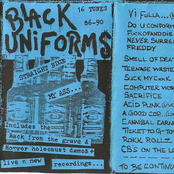 BLACK
UNIFORMS
16 TUNES
86-90
STRAIGHT EDGE
MY ASS...
Includes the
Back from the grave &
Hoover holocaust demos +
live n new
recordings...
VI FULLA...
DO U CONFORM
FUCKOFANDDIE
NEVER SURRE
FREDDY
SMELL OF DEA
TEENAGE WASTE
SUCK MY
COMPUTER WOR
SACRIFICE
ACID PUNK
A GOOD COP..
CANNIBAL
TICKET TO G-TO
ROKK ROLLZ
CBS ON THE
TO BE CONTINU